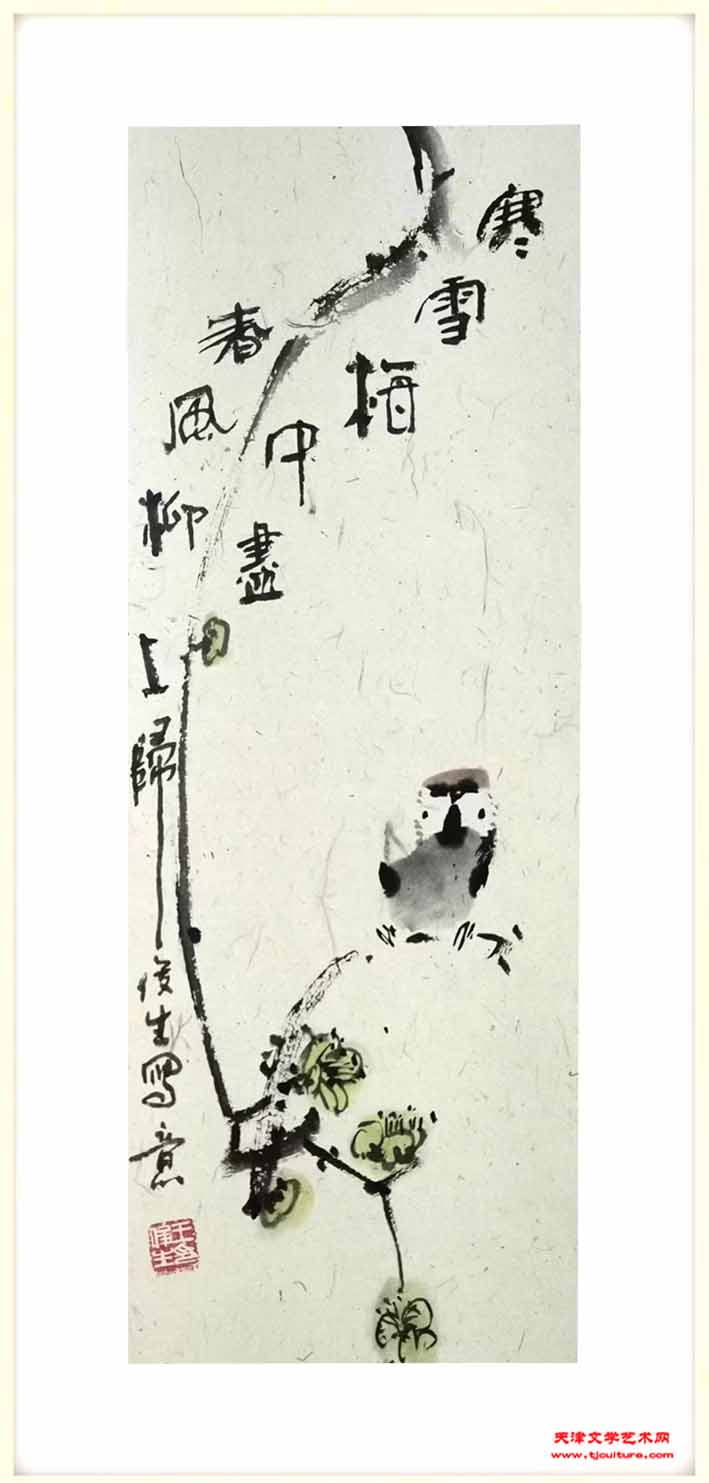 寒雪梅中盡
春風柳上歸
俊生寫意
天津文学艺术网
www.tjculture.com